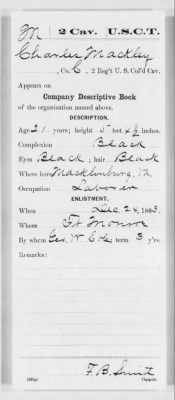 M | 2 Cav. | U.S.C.T.
Charles Mackley
, Co. C, 2 Reg't U. S. Col'd Cav.
Appears on
Company Descriptive Book
of the organization named above.
DESCRIPTION.
Age 21 years; height 5 feet inches.
Complexion Black
Eyes Black; hair Black
Where born Macklinburg, Va
Occupation Laborer
ENLISTMENT.
When Dec. 24, 1863.
Where Ft Monroe
By whom Geo. W. Cole; term 3 y'rs.
Remarks:
F. B. Smit
Copyist.